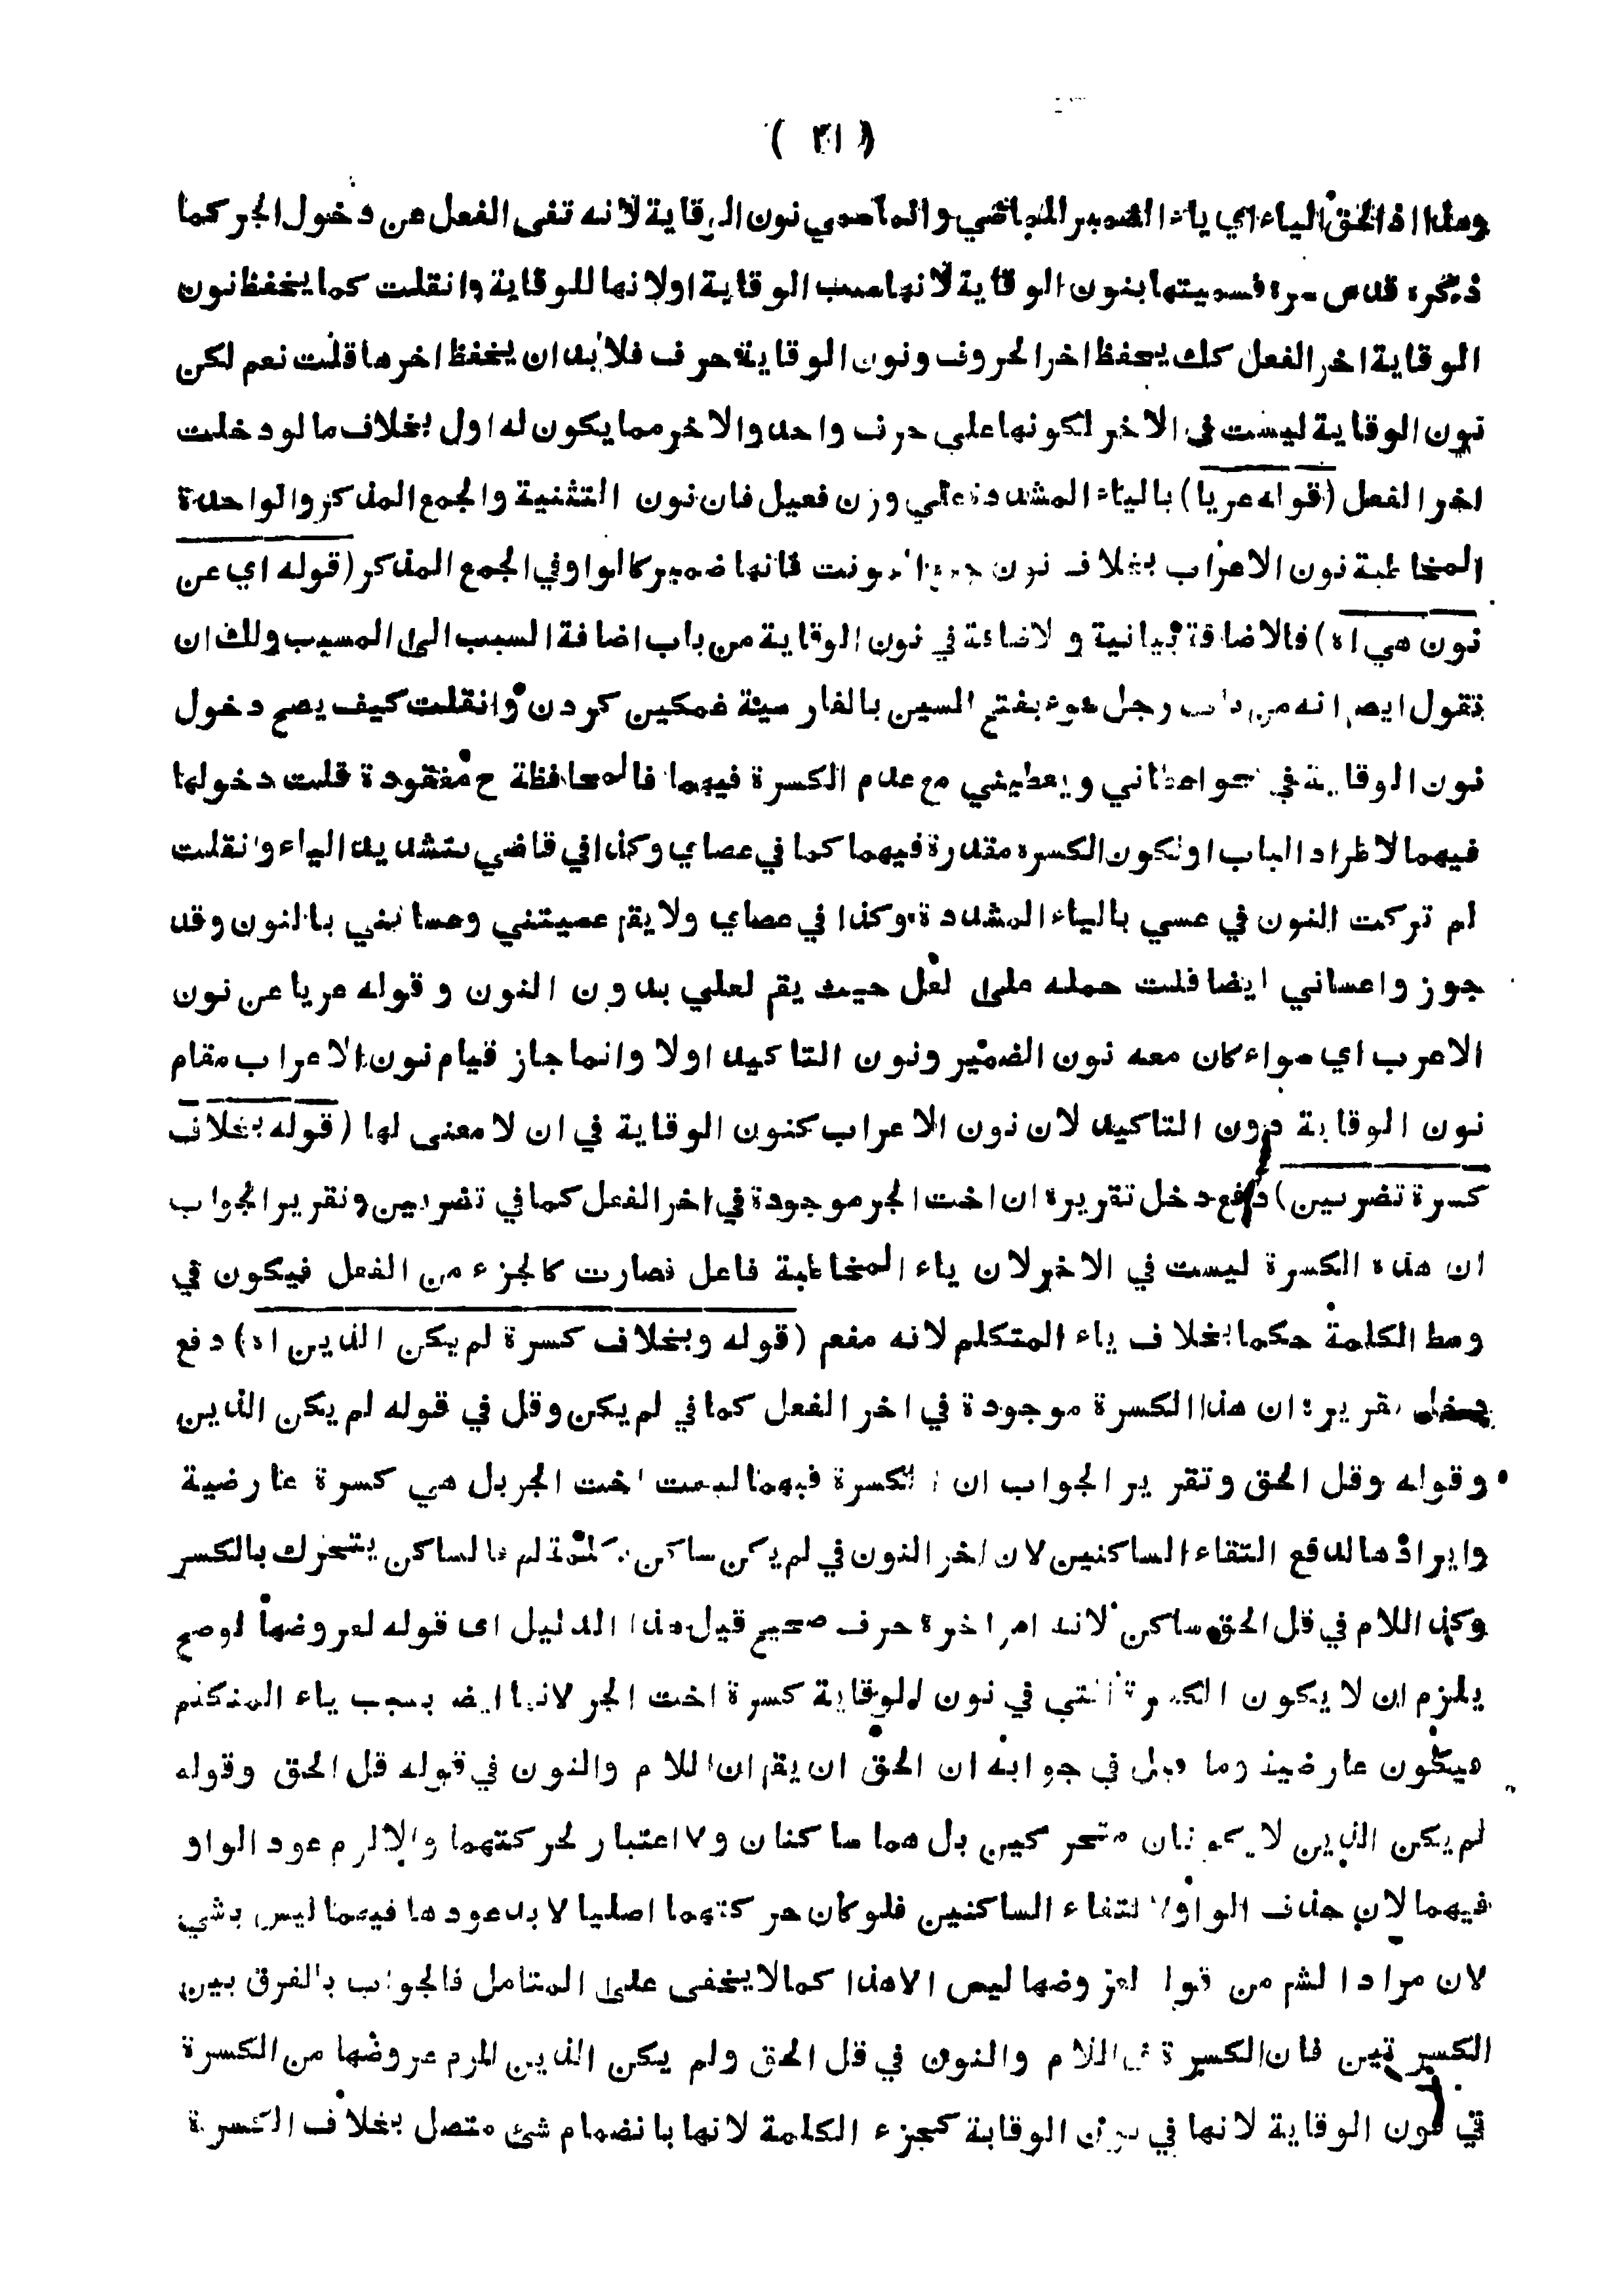 ( ٢١ )
الياء اي ياء الضمير نون الوقاية لانه تقى الفعل عن دخول الجر كما
ذكره قدس سره فسميتها بنون الوقاية لانها سبب الوقاية اولانها للوقاية وانقلت كما يحفظ نون
الوقاية اخر الفعل كك يحفظ اخر الحروف ونون الوقاية حرف فلابد ان يحفظ اخرها قلت نعم لكن
نون الوقاية ليست في الاخر لكونها علي حرف واحد والاخر مما يكون له اول بخلاف ما لو دخلت
اخر الفعل (قوله عريا) بالياء المشددة علي وزن فعيل فان نون التثنية والجمع المذكر والواحدة
المخاطبة نون الاعراب بخلاف نون فانها ضمير كالواو في الجمع المذكر (قوله اي عن
نون هي اه) فالاضافة بيانية و لاضافة في نون الوقاية من باب اضافة السبب الى المسبب ولك ان
تقول ايض انه من باب رجل سوء بفتح السين بالفارسية غمگين كردن وانقلت كيف يصح دخول
نون الوقاية في نحو اعطاني ويعطيني مع عدم الكسرة فيهما فالمحافظة ح مفقودة قلت دخولها
فيهما لاطراد الباب اولكون الكسرة مقدرة فيهما كما في عصاي وكذا في قاضي بتشديد الياء وانقلت
لم تركت النون في عسي بالياء المشددة وكذا في عصاي ولا يقم عصيتني وعسانني بالنون وقد
جوز واعساني ايضا قلت حمله على لعل حيث يقم لعلي بدون النون وقوله عريا عن نون
الاعرب اي سواء كان معه نون الضمير ونون التاكيد اولا وانما جاز قيام نون الاعراب مقام
نون الوقاية دون التاكيد لان نون الاعراب كنون الوقاية في ان لا معنى لها (قوله بخلاف
كسرة تضربين) دفع دخل تقريره ان اخت الجر موجودة في اخر الفعل كما في تضربين وتقرير الجواب
ان هذه الكسرة ليست في الاخر لان ياء المخاطبة فاعل فصارت كالجزء من الفعل فيكون في
وسط الكلمة حكما بخلاف ياء المتكلم لانه مفعم (قوله وبخلاف كسرة لم يكن الذين اه) دفع
دخل تقريره ان هذا الكسرة موجودة في اخر الفعل كما في لم يكن وقل في قوله لم يكن الذين
وقوله وقل الحق وتقرير الجواب ان الكسرة فيهما ليست اخت الجر بل هي كسرة عارضية
وايرادها لدفع التقاء الساكنين لان اخر النون في لم يكن ساكن بكلمة لم والساكن يتحرك بالكسر
وكذ اللام في قل الحق ساكن لانه امر اخره حرف صحيح قيل هذا الدليل اى قوله لعروضها لوصح
يلزم ان لا يكون الكسرة التي في نون الوقاية كسرة اخت الجر لانها ايض بسبب ياء المتكلم
فيكون عارضية وما قيل في جوابه ان الحق ان يقم ان اللام والنون في قوله قل الحق وقوله
لم يكن الذين لا يكونان متحركين بل هما ساكنان ولا اعتبار لحركتهما والالزم عود الواو
فيهما لان حذف الواو لالتقاء الساكنين فلو كان حركتهما اصليا لابد عودها فيهما ليس بشي
لان مراد الشم من قوله لعروضها ليس الاهذا كما لا يخفى على المتامل فالجواب بالفرق بين
الكسرتين فان الكسرة في اللام والنون في قل الحق ولم يكن الذين الزم عروضها من الكسرة
في نون الوقاية لانها في نون الوقاية كجزء الكلمة لانها بانضمام شئ متصل بخلاف الكسرة